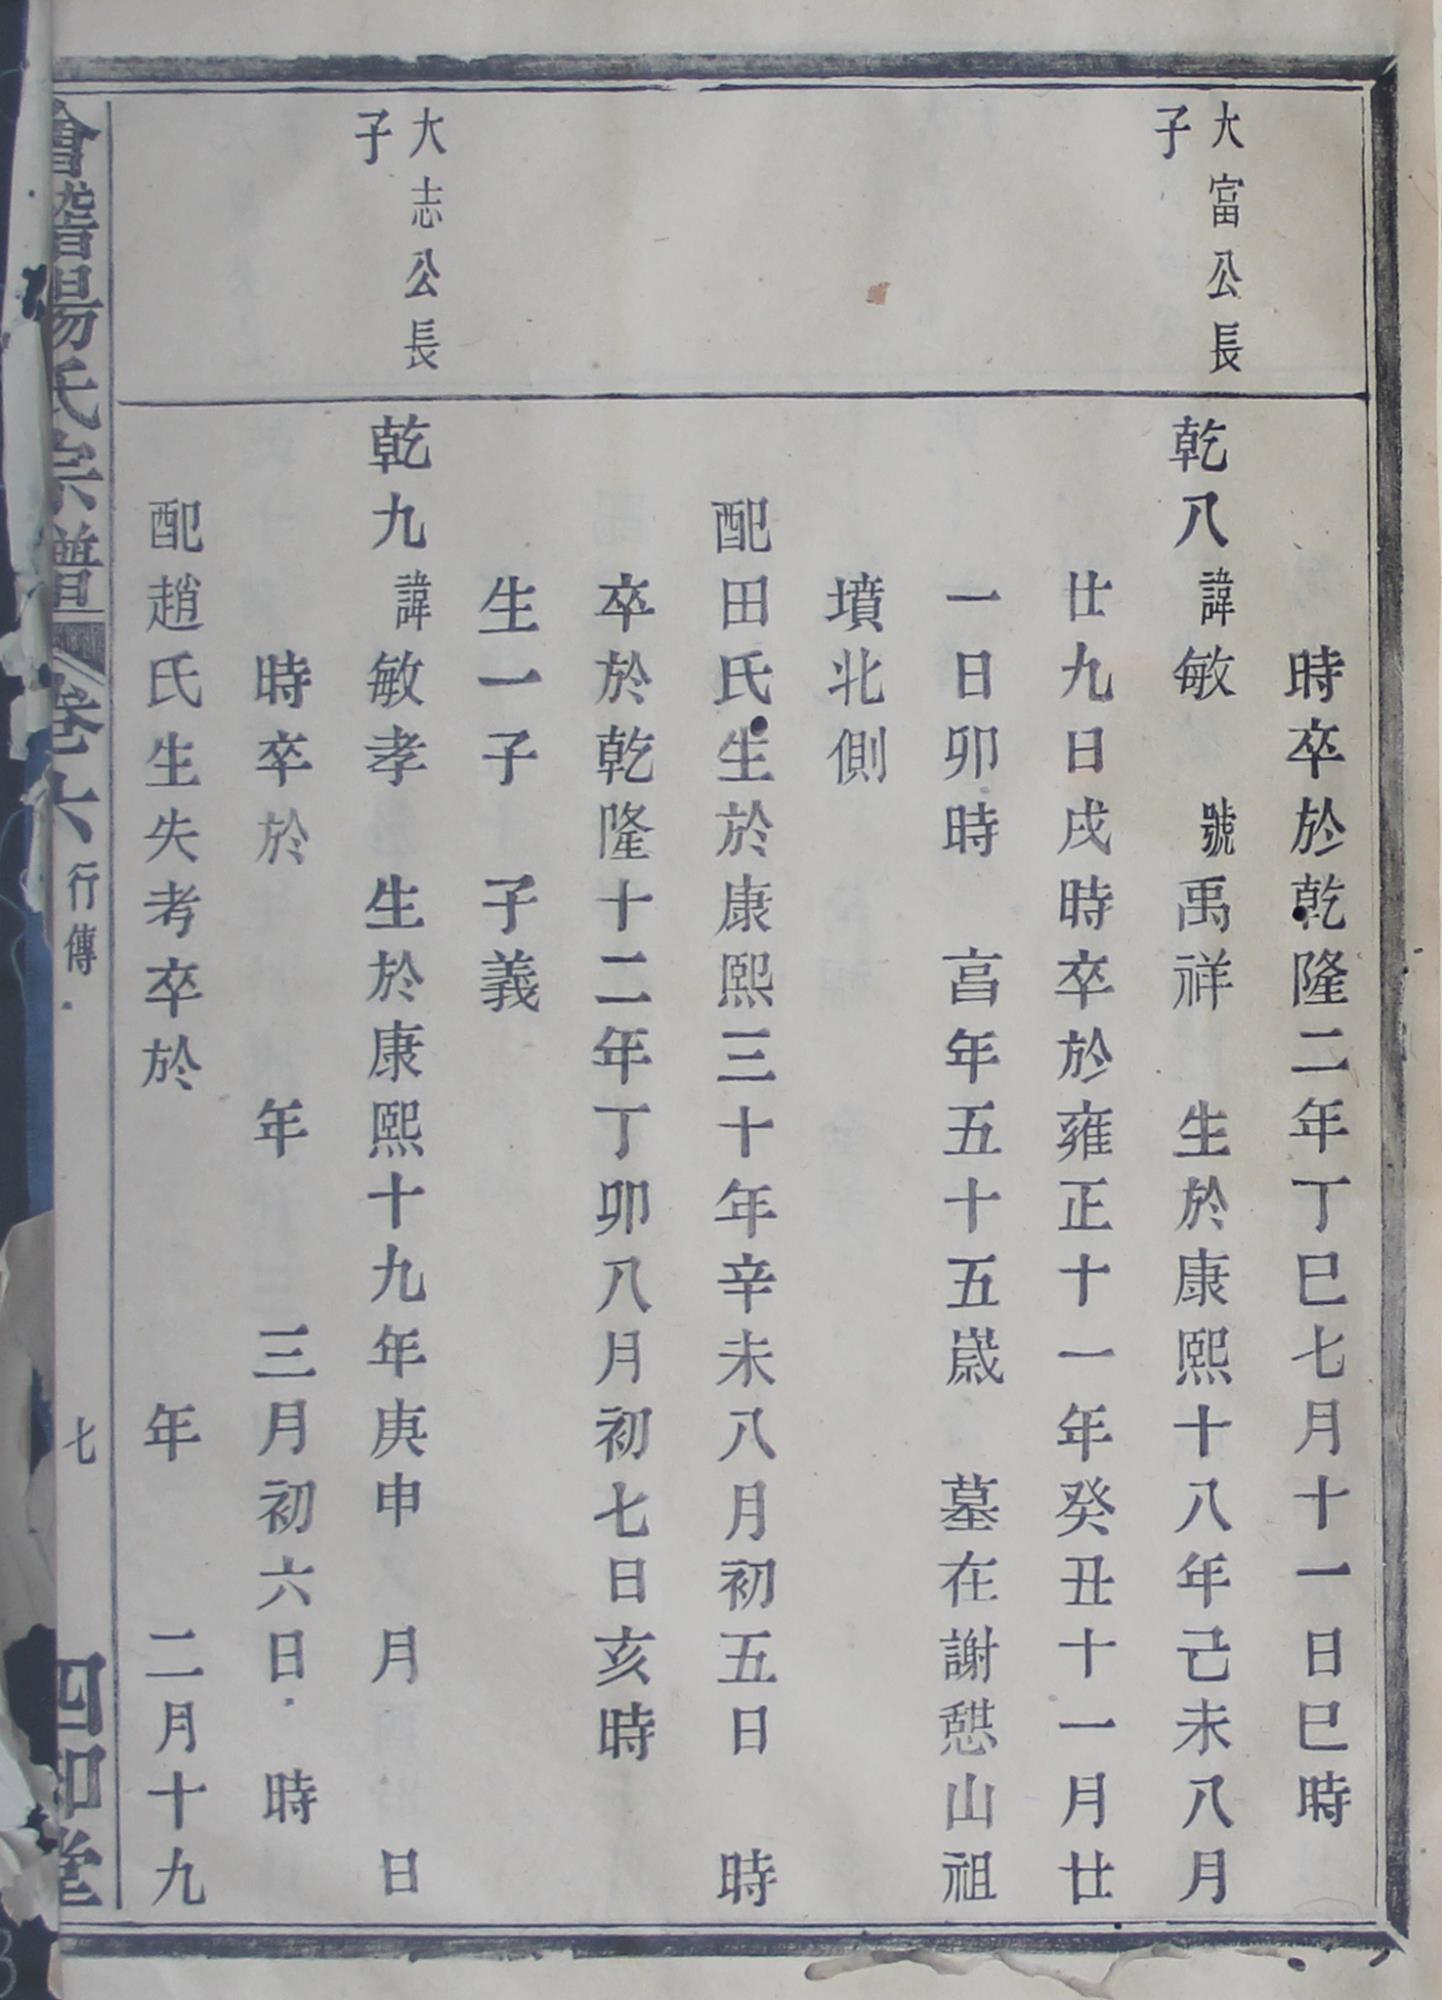 時卒於乾隆二年丁巳七月十一日巳時
大富公長
子
乾八諱敏 號禹祥 生於康熙十八年己未八月
廿九日戌時卒於雍正十一年癸丑十一月廿
一日卯時 亯年五十五嵗 墓在謝憇山祖
墳北側
配田氏生於康熙三十年辛未八月初五日 時
卒於乾隆十二年丁卯八月初七日亥時
生一子 子義
大志公長
子
乾九諱敏孝 生於康熙十九年庚申 月 日
時卒於 年 三月初六日 時
配趙氏生失考卒於 年 二月十九
會稽楊氏宗譜 卷六 行傳 七 四知堂